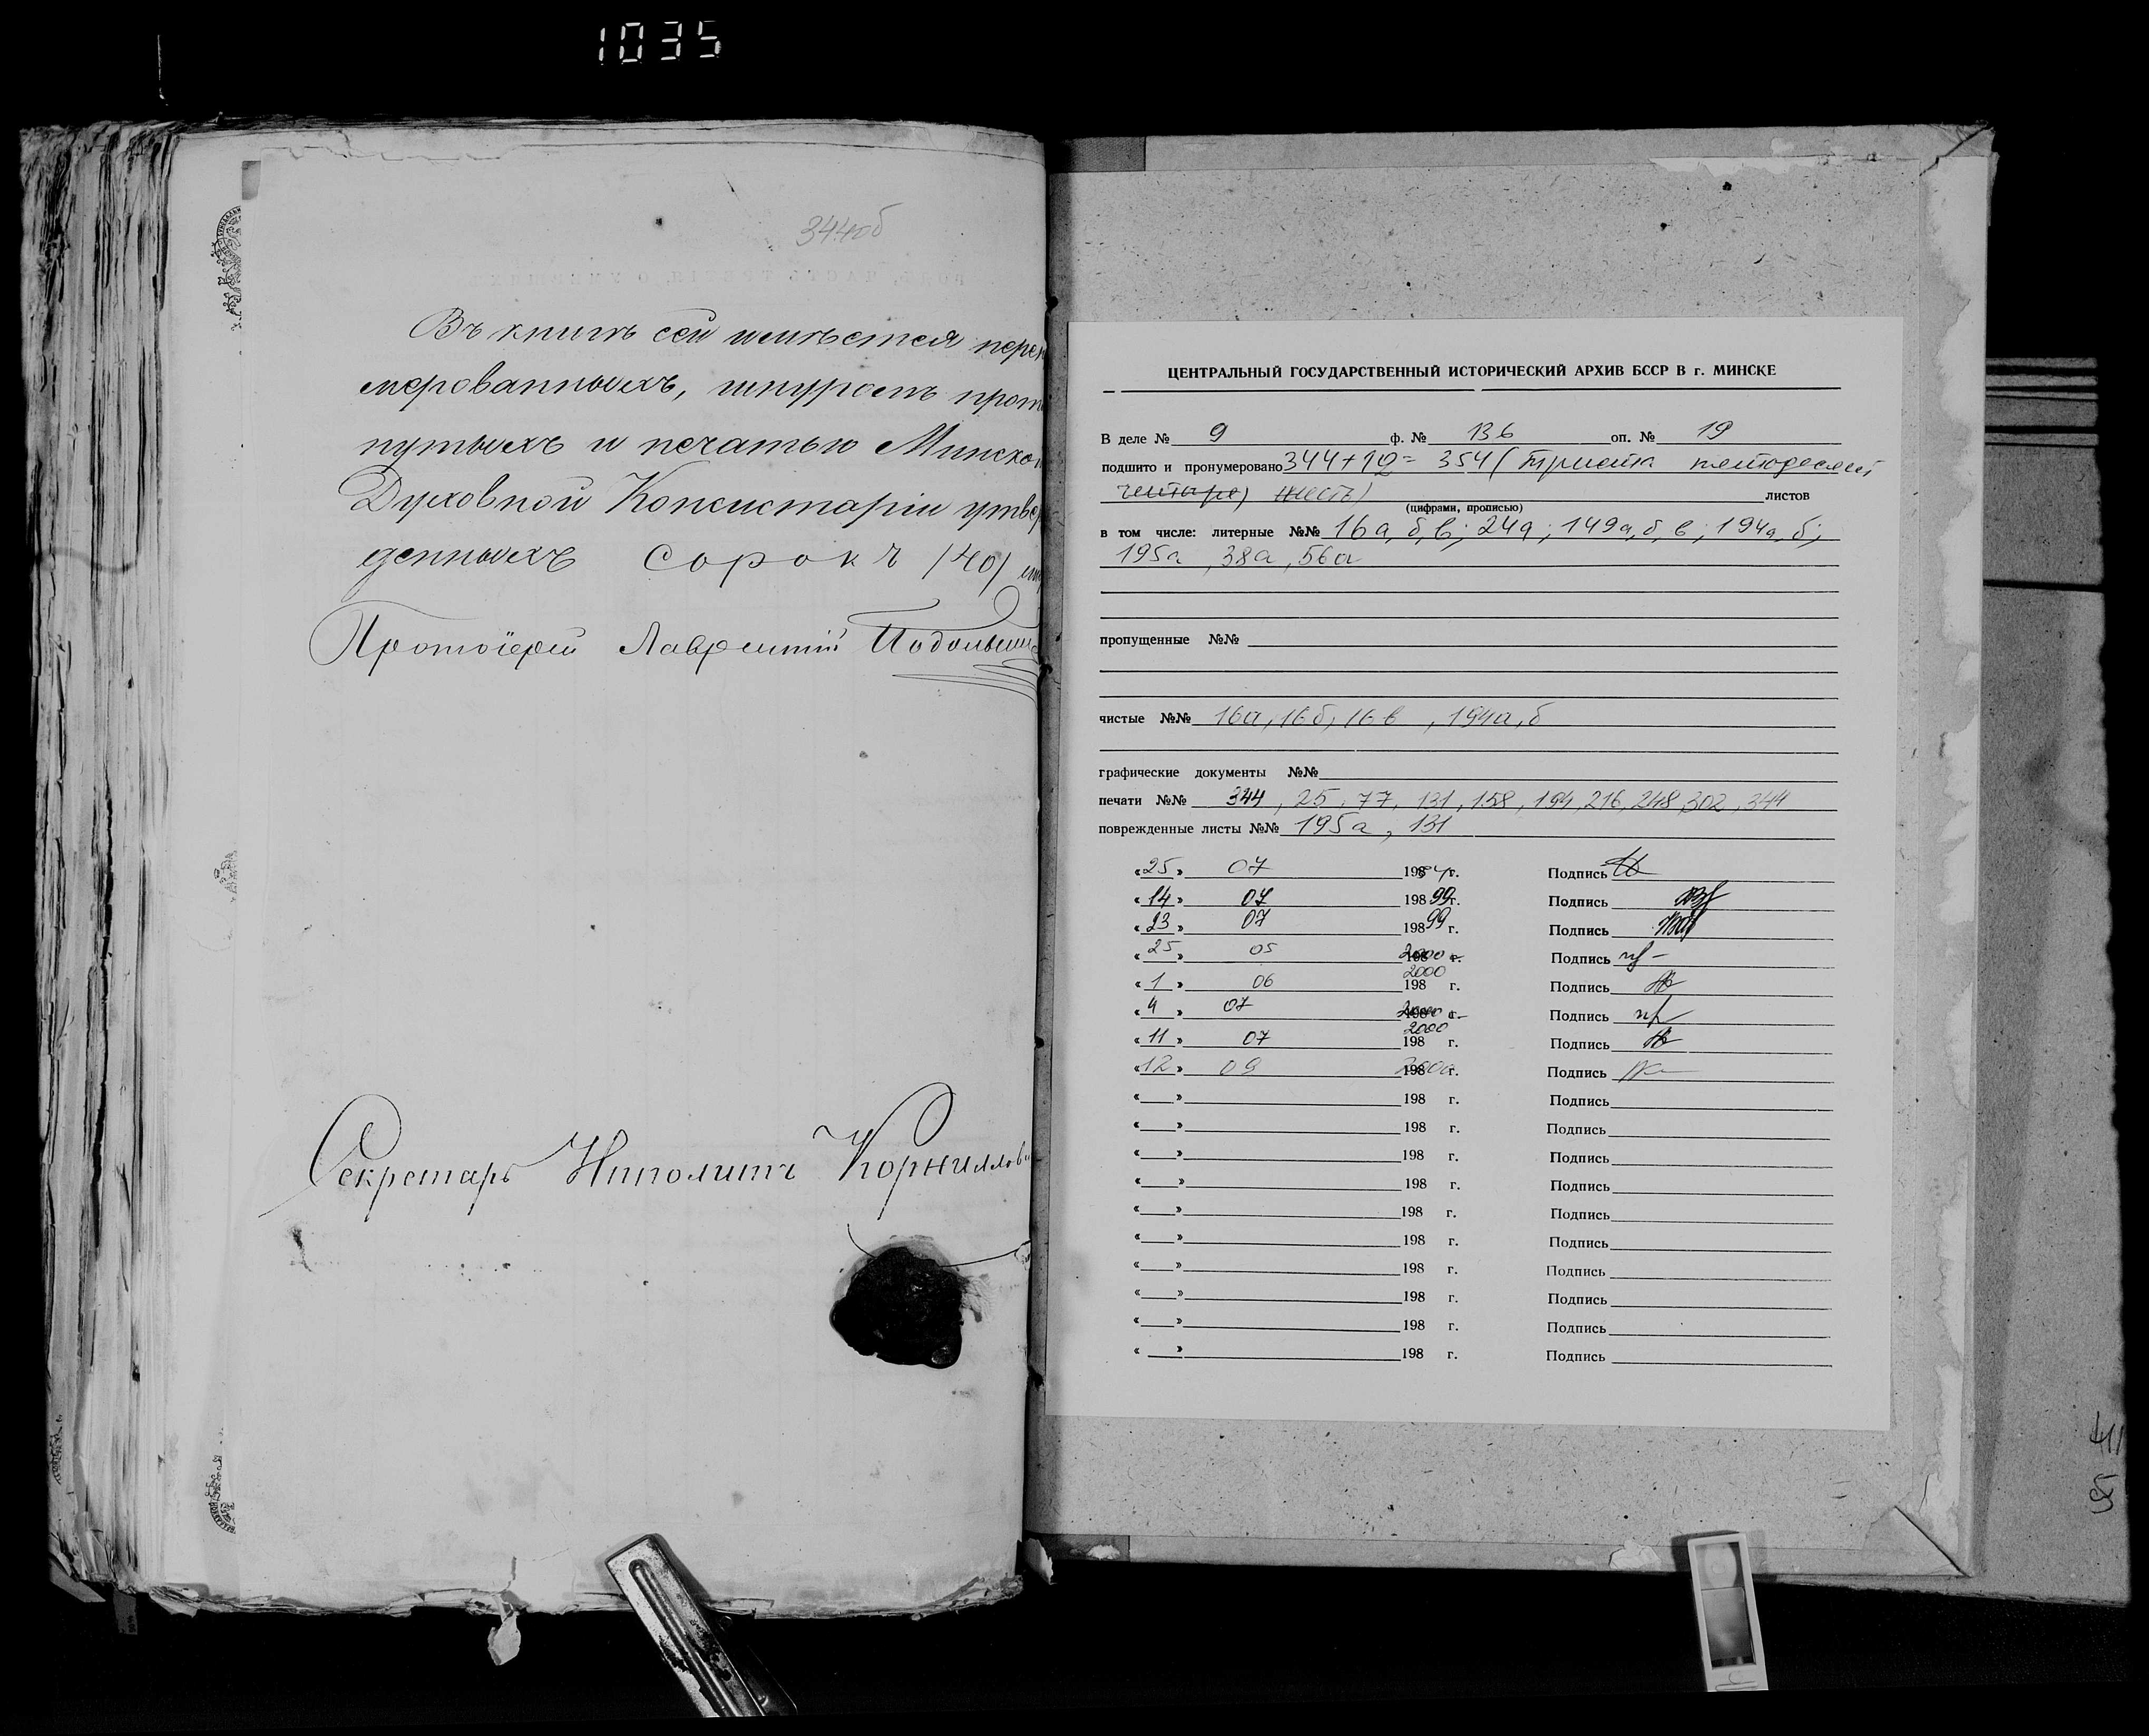 1035
344об
Въ книгѣ сей имѣется перен
мерованныхъ, шнуромъ протя
нутыхъ и печатью Минской
Духовной Консисторіи утвер
денныхъ сорокъ (40)
Протоіерей Лаврентій
Секретарь Иполитъ Корнилов
ЦЕНТРАЛЬНЫЙ ГОСУДАРСТВЕННЫЙ ИСТОРИЧЕСКИЙ АРХИВ БССР В г. МИНСКЕ
В деле № 9 ф. № 136 оп. № 19
подшито и пронумеровано 344+10= 354 (триста пятьдесят
четыре) шесть) листов
(цифрами, прописью)
в том числе: литерные №№ 16а, б, в; 24а; 149а, б, в; 194а, б;
195а, 38а, 56а
пропущенные №№
чистые №№ 16а, 16б, 16в, 194а, б
графические документы №№
печати №№ 344, 25, 77, 131, 158, 194, 216, 248, 302, 344
поврежденные листы №№ 195а, 131
«25» 07 198 г. Подпись
«14» 07 198 99 г. Подпись
«23» 07 198 99 г. Подпись
«25» 05 2000 г. Подпись
«1» 06 2000 198 г. Подпись
«4» 07 2000 г. Подпись
«11» 07 2000 198 г. Подпись
«12» 09 2000 198 г. Подпись
« » 198 г. Подпись
« » 198 г. Подпись
« » 198 г. Подпись
« » 198 г. Подпись
« » 198 г. Подпись
« » 198 г. Подпись
« » 198 г. Подпись
« » 198 г. Подпись
« » 198 г. Подпись
« » 198 г. Подпись